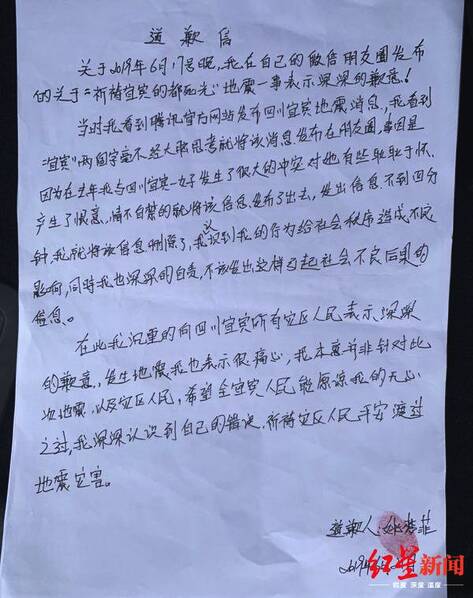 道歉信
关于2019年6月17号晚,我在自己的微信朋友圈发布
的关于“祈祷宜宾的都死光”地震一事表示深深的歉意!
当时我看到腾讯官方网站发布四川宜宾地震消息,我看到
“宜宾”两个字毫不经大脑思考就将该消息发布在朋友圈,原因是
因为在去年我与四川宜宾一女子发生了很大的冲突对她有些耿耿于怀,
产生了恨意,情不自禁的就将该信息发布了出去,发出信息不到四分
钟,我就将该信息删除了,我认识到我的行为给社会秩序造成不良
影响,同时我也深深的自责,不该发出这样引起社会不良后果的
信息。
在此我沉重的向四川宜宾所有灾区人民表示深深
的歉意,发生地震我也表示很痛心,我本意并非针对此
次地震以及灾区人民,希望全宜宾人民能原谅我的无心
之过,我深深认识到自己的错误,祈祷灾区人民平安渡过
地震灾害。
道歉人:
2019年
红星新闻
锐度 深度 温度